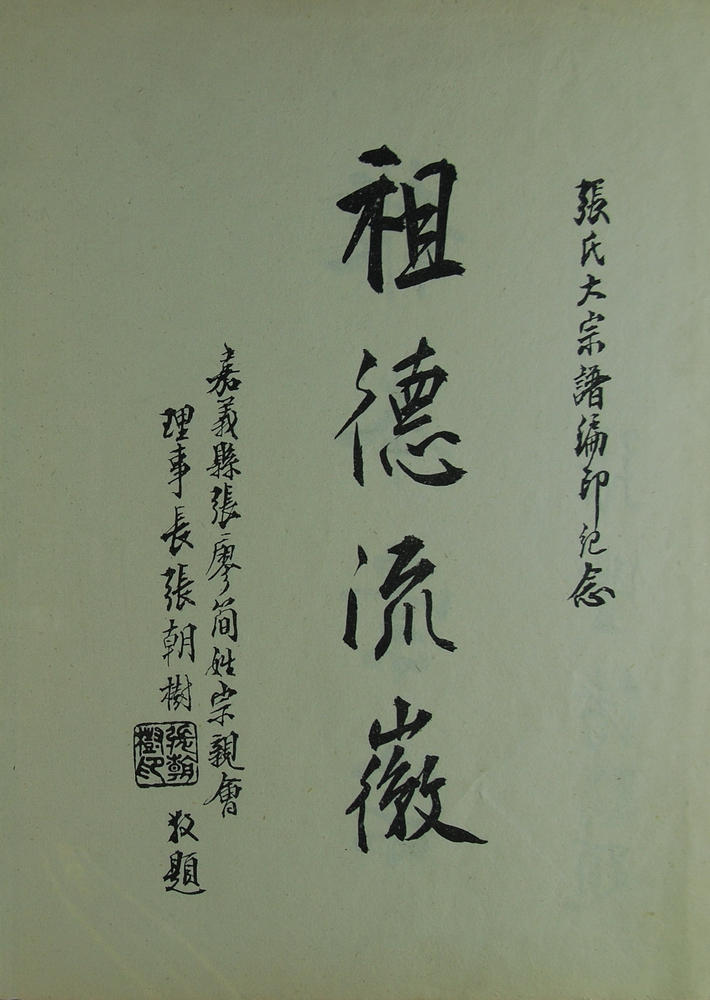 張氏大宗譜編印紀念
祖德流徽
嘉義縣張廖簡姓宗親會
理事長張朝樹
張朝樹印
敬題